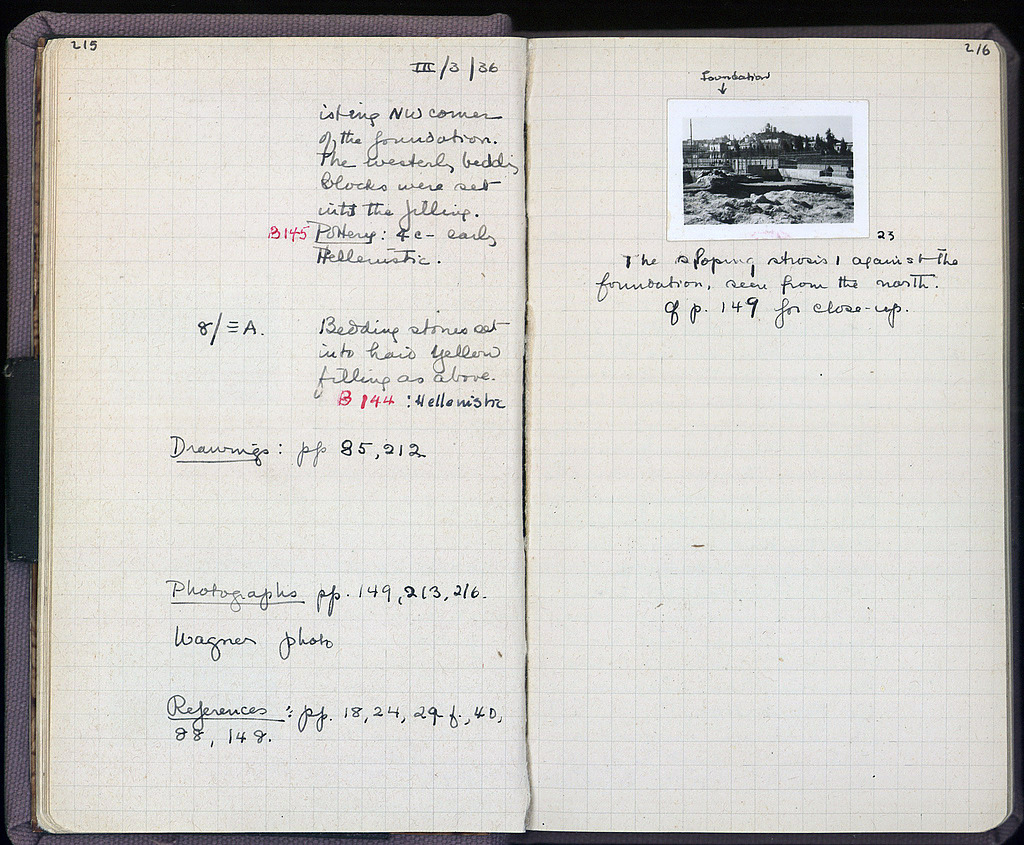 215
III/3/36
isting NW corner
of the foundation.
The westerly bedding
blocks were set
into the filling.
B145 Pottery: 4c - early
Hellenistic.
8/≡A. Bedding stones set
into hard yellow
filling as above.
B 144 : Hellenistic
Drawings: pp 85, 212
Photographs pp. 149, 213, 216.
Wagner photo
References: pp. 18, 24, 29 f., 40,
88, 148.
216
Foundation
23
The sloping strosis 1 against the
foundation, seen from the north.
cf p. 149 for close-up.